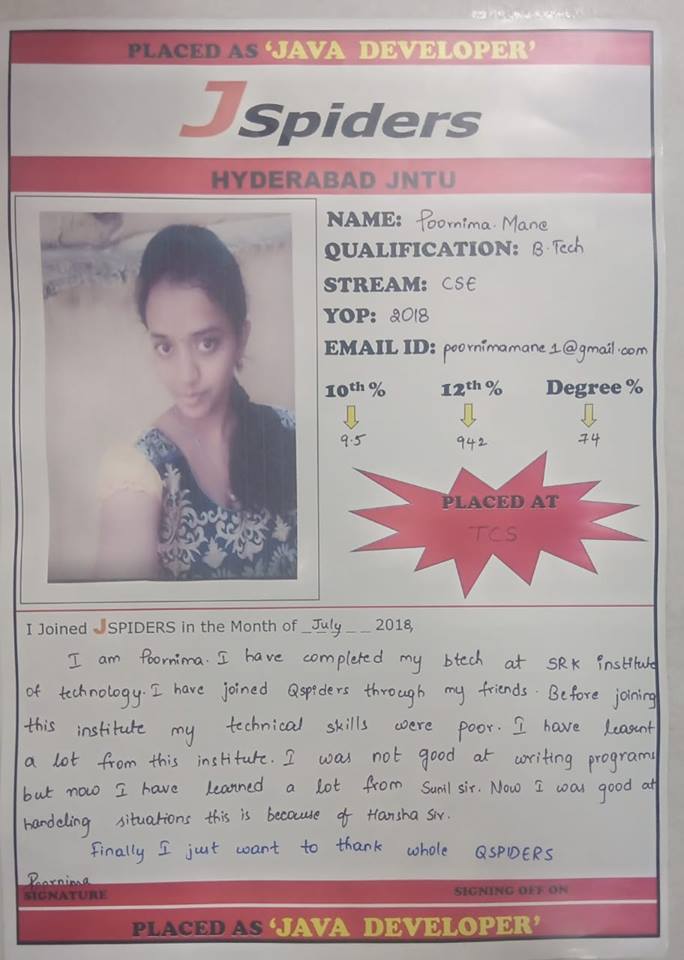 PLACED AS ‘JAVA DEVELOPER’
JSpiders
HYDERABAD JNTU
NAME: Poornima. Mane
QUALIFICATION: B.Tech
STREAM: CSE
YOP: 2018
EMAIL ID: poornimamane1@gmail.com
10th % 12th % Degree %
9.5 942 74
PLACED AT
TCS
I Joined JSPIDERS in the Month of _July_ _ 2018,
I am Poornima. I have completed my btech at SRK institute
of technology. I have joined Qspiders through my friends. Before joining
this institute my technical skills were poor. I have learnt
a lot from this institute. I was not good at writing programs
but now I have learned a lot from Sunil sir. Now I was good at
handeling situations this is because of Harsha Sir.
Finally I just want to thank whole QSPIDERS
Poornima
SIGNATURE SIGNING OFF ON
PLACED AS ‘JAVA DEVELOPER’